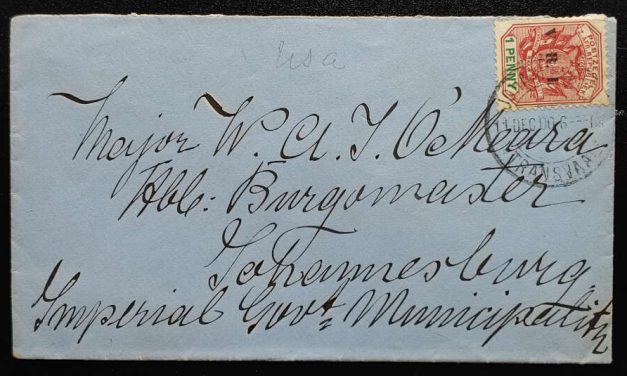 usa
POSTZEGEL
1 PENNY
V.R.I
11 DEC 00
TRANSVAA
Major W. A. J. O'Meara
Hbl: Burgomaster
Johannesburg.
Imperial Govt Municipality